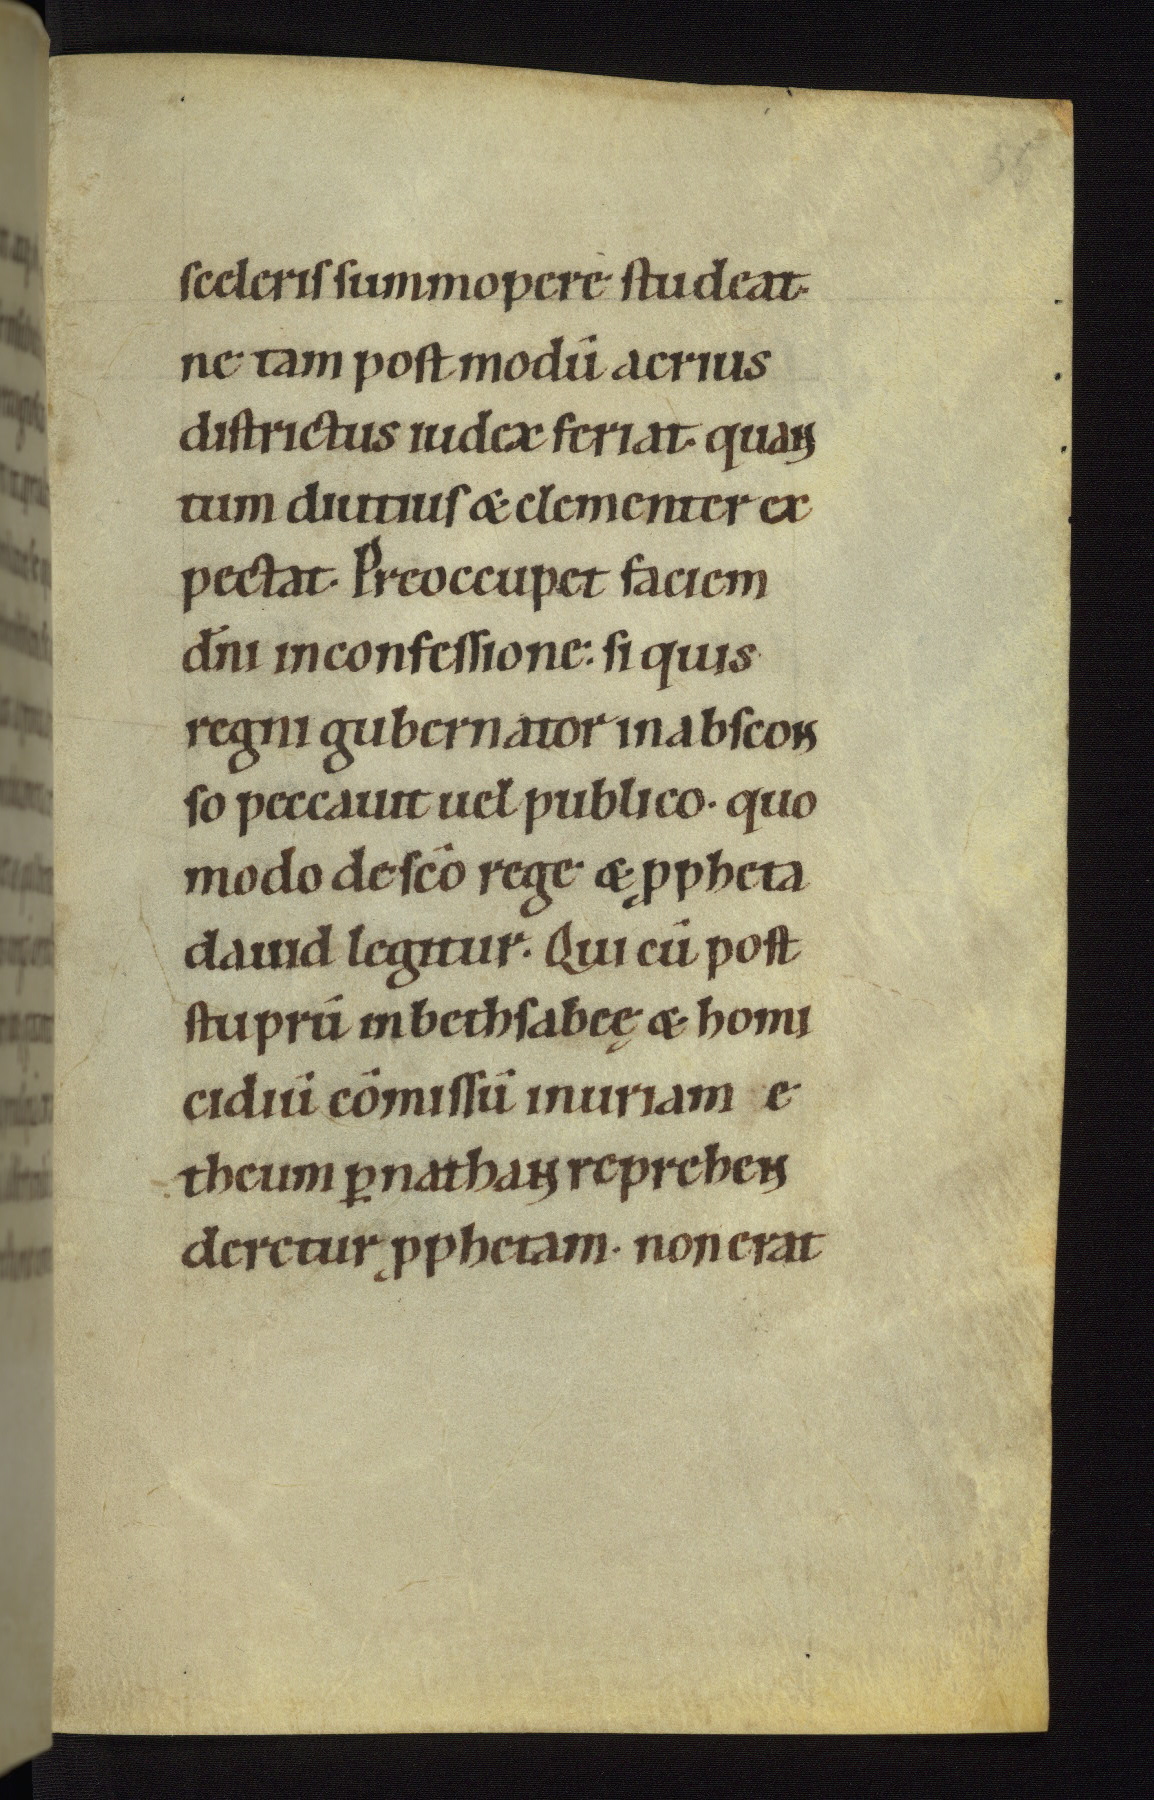 sceleris summopere studeat·
ne tam postmodū acrius
districtus iudex feriat· quan
tum diutius & clementer ex
pectat· Preoccupet faciem
dn̄i in confessione: si quis
regni gubernator in abscon
so peccauit uel publico· quo
modo de sc̄o rege & ꝓpheta
dauid legitur· Qui cū post
stuprū in bethsabeę & homi
cidiū cōmissū in uriam e
theum ꝑ nathan reprehen
deretur ꝓphetam· non erat